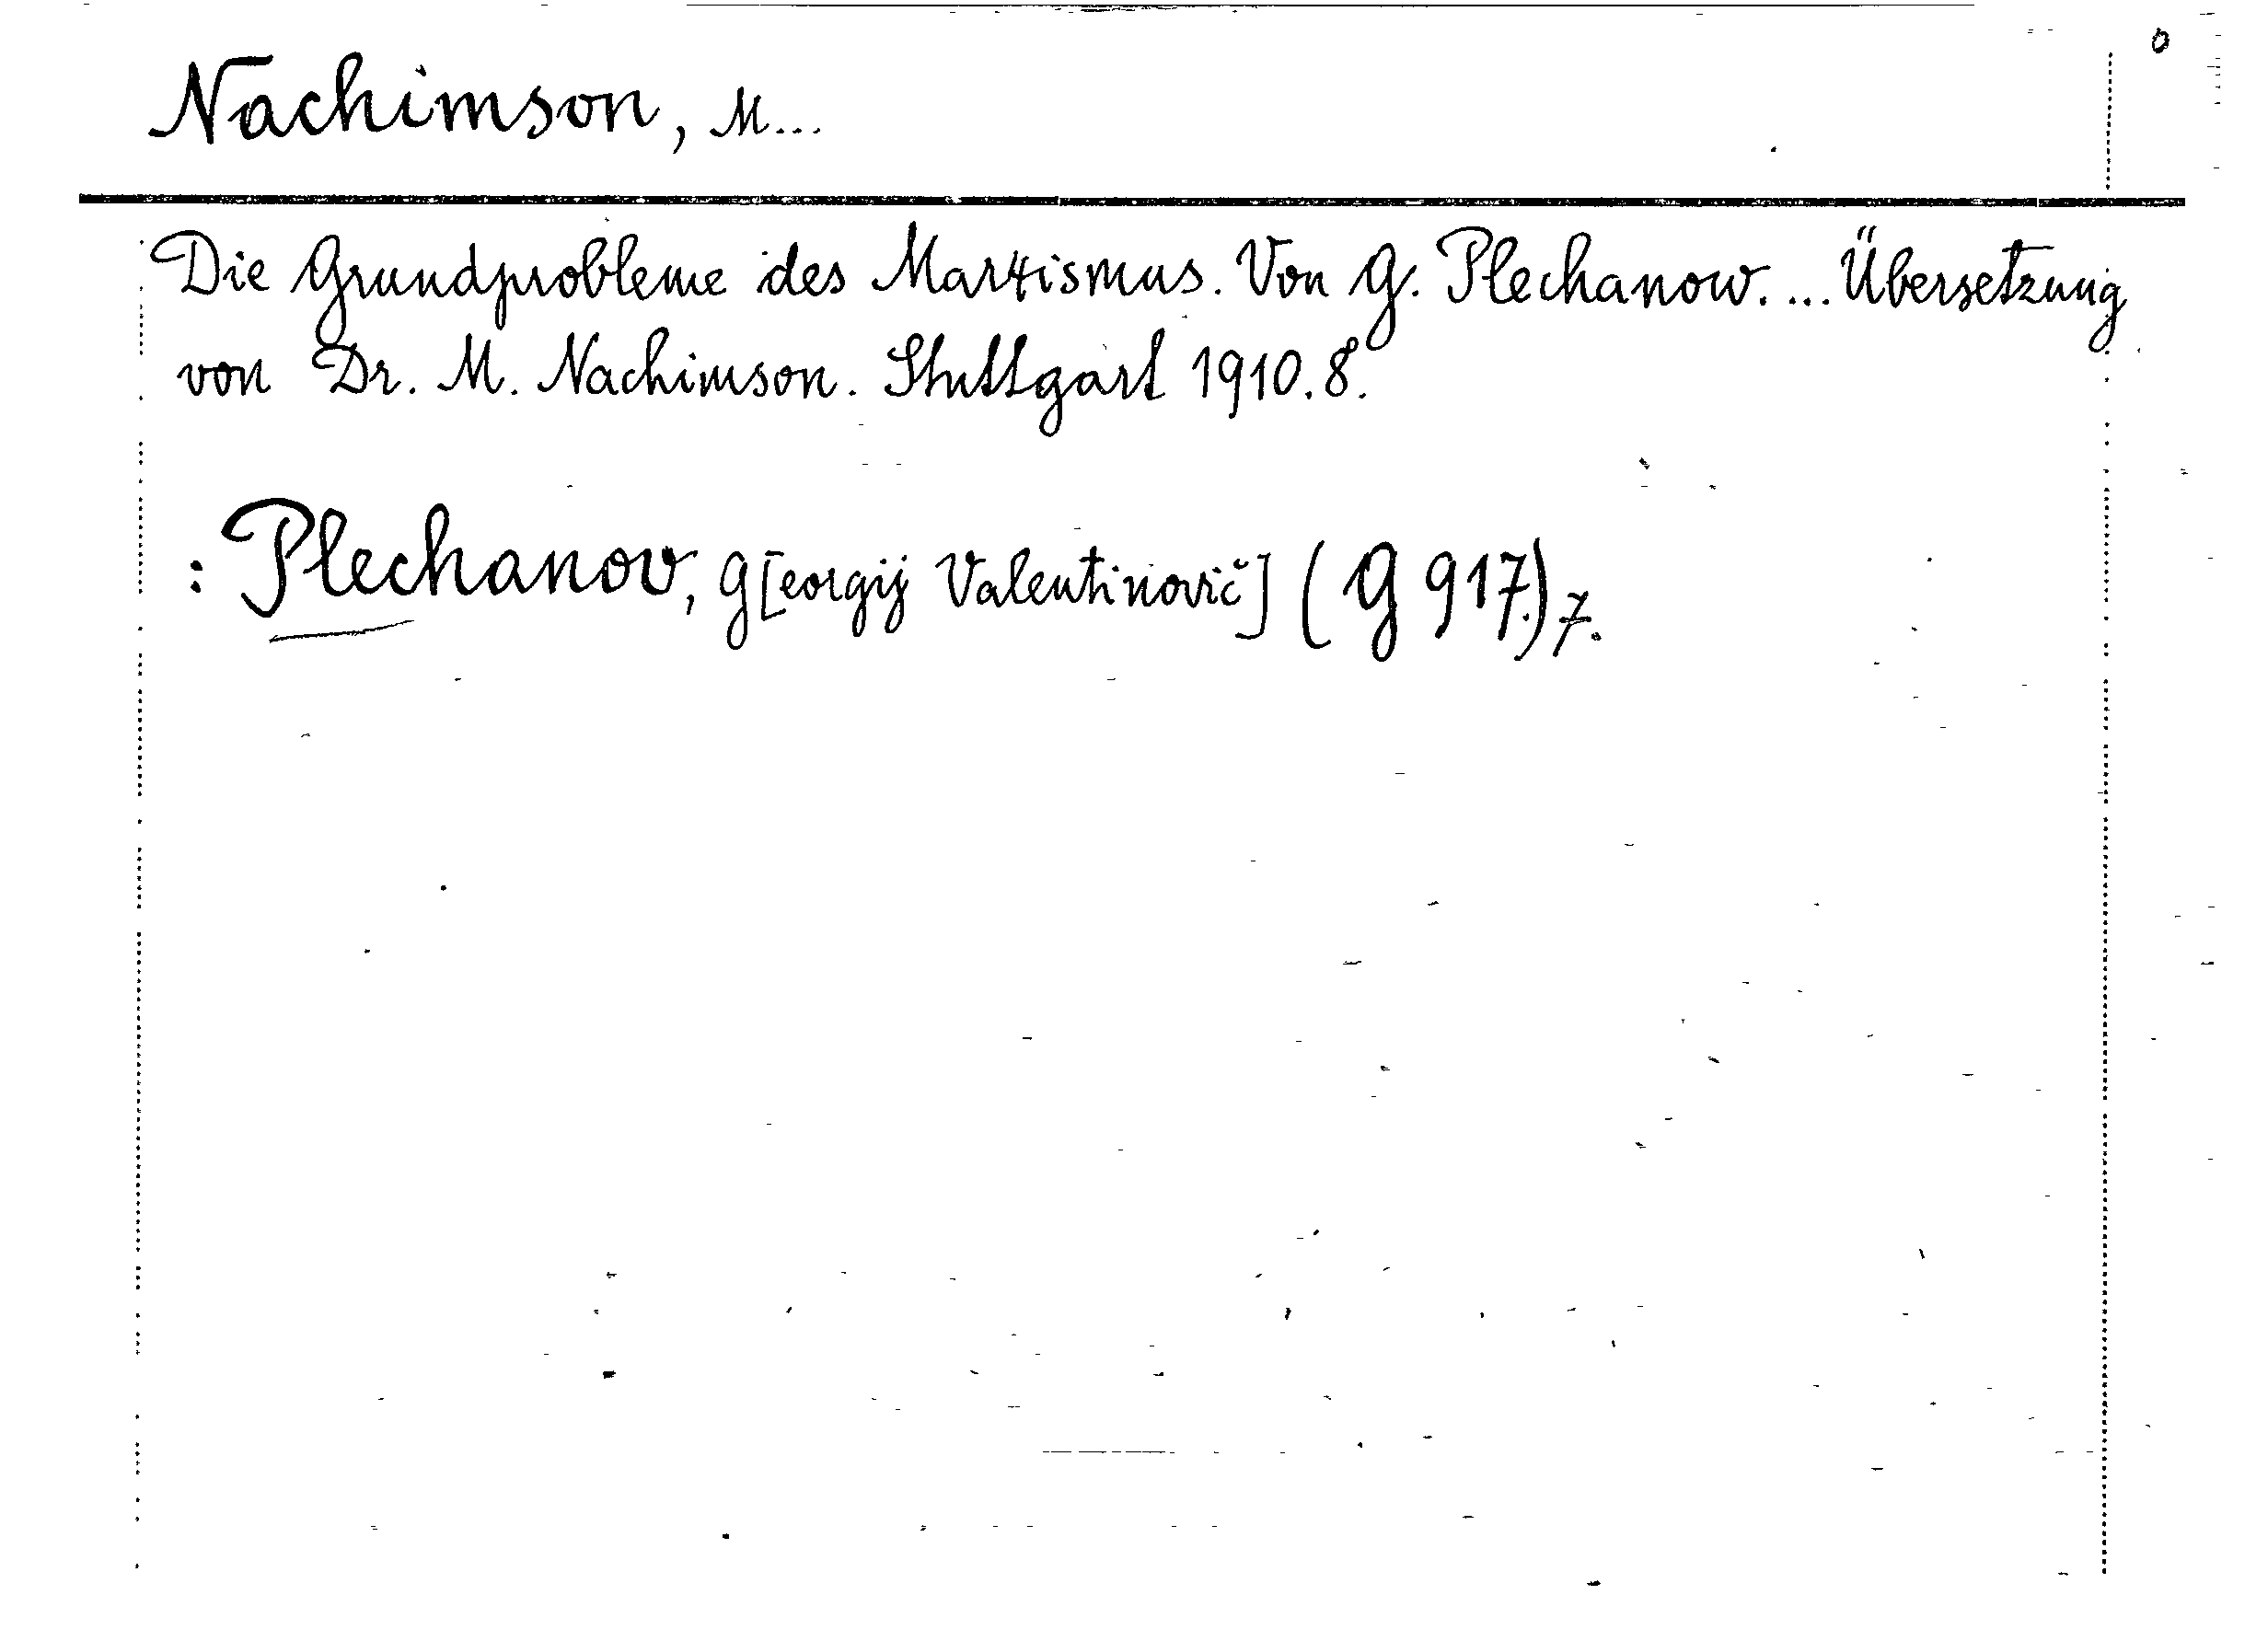 0
Nachimson, M...
Die Grundprobleme des Marxismus. Von G. Plechanow. ... Übersetzung
von Dr. M. Nachimson. Stuttgart 1910. 8.
: Plechanov, G[eorgij Valentinovič] (G 917.) 7.